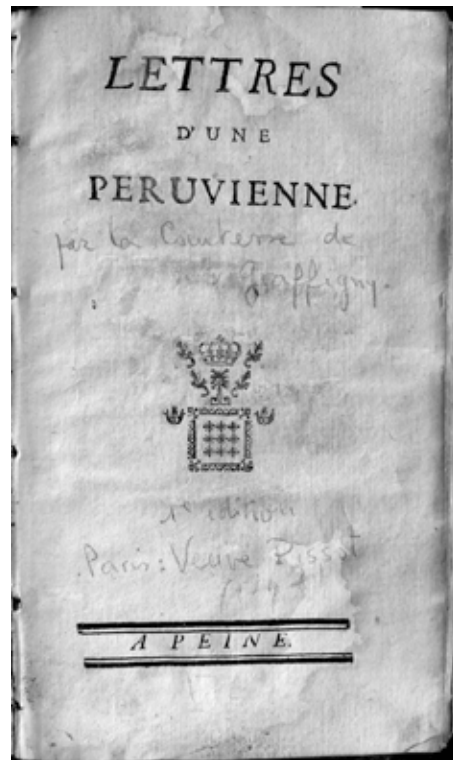 LETTRES
D'UNE
PERUVIENNE.
par la Comtesse de
Graffigny.
1e edition
Paris: Veuve Pissot
A PEINE.